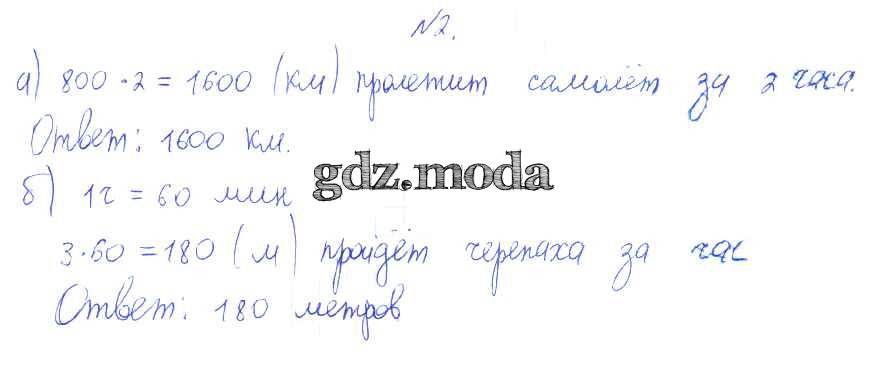 №2.
а) 800 · 2 = 1600 (км) пролетит самолёт за 2 часа.
Ответ: 1600 км.
gdz.moda
б) 1ч = 60 мин
3·60 = 180 (м) пройдёт черепаха за час
Ответ: 180 метров